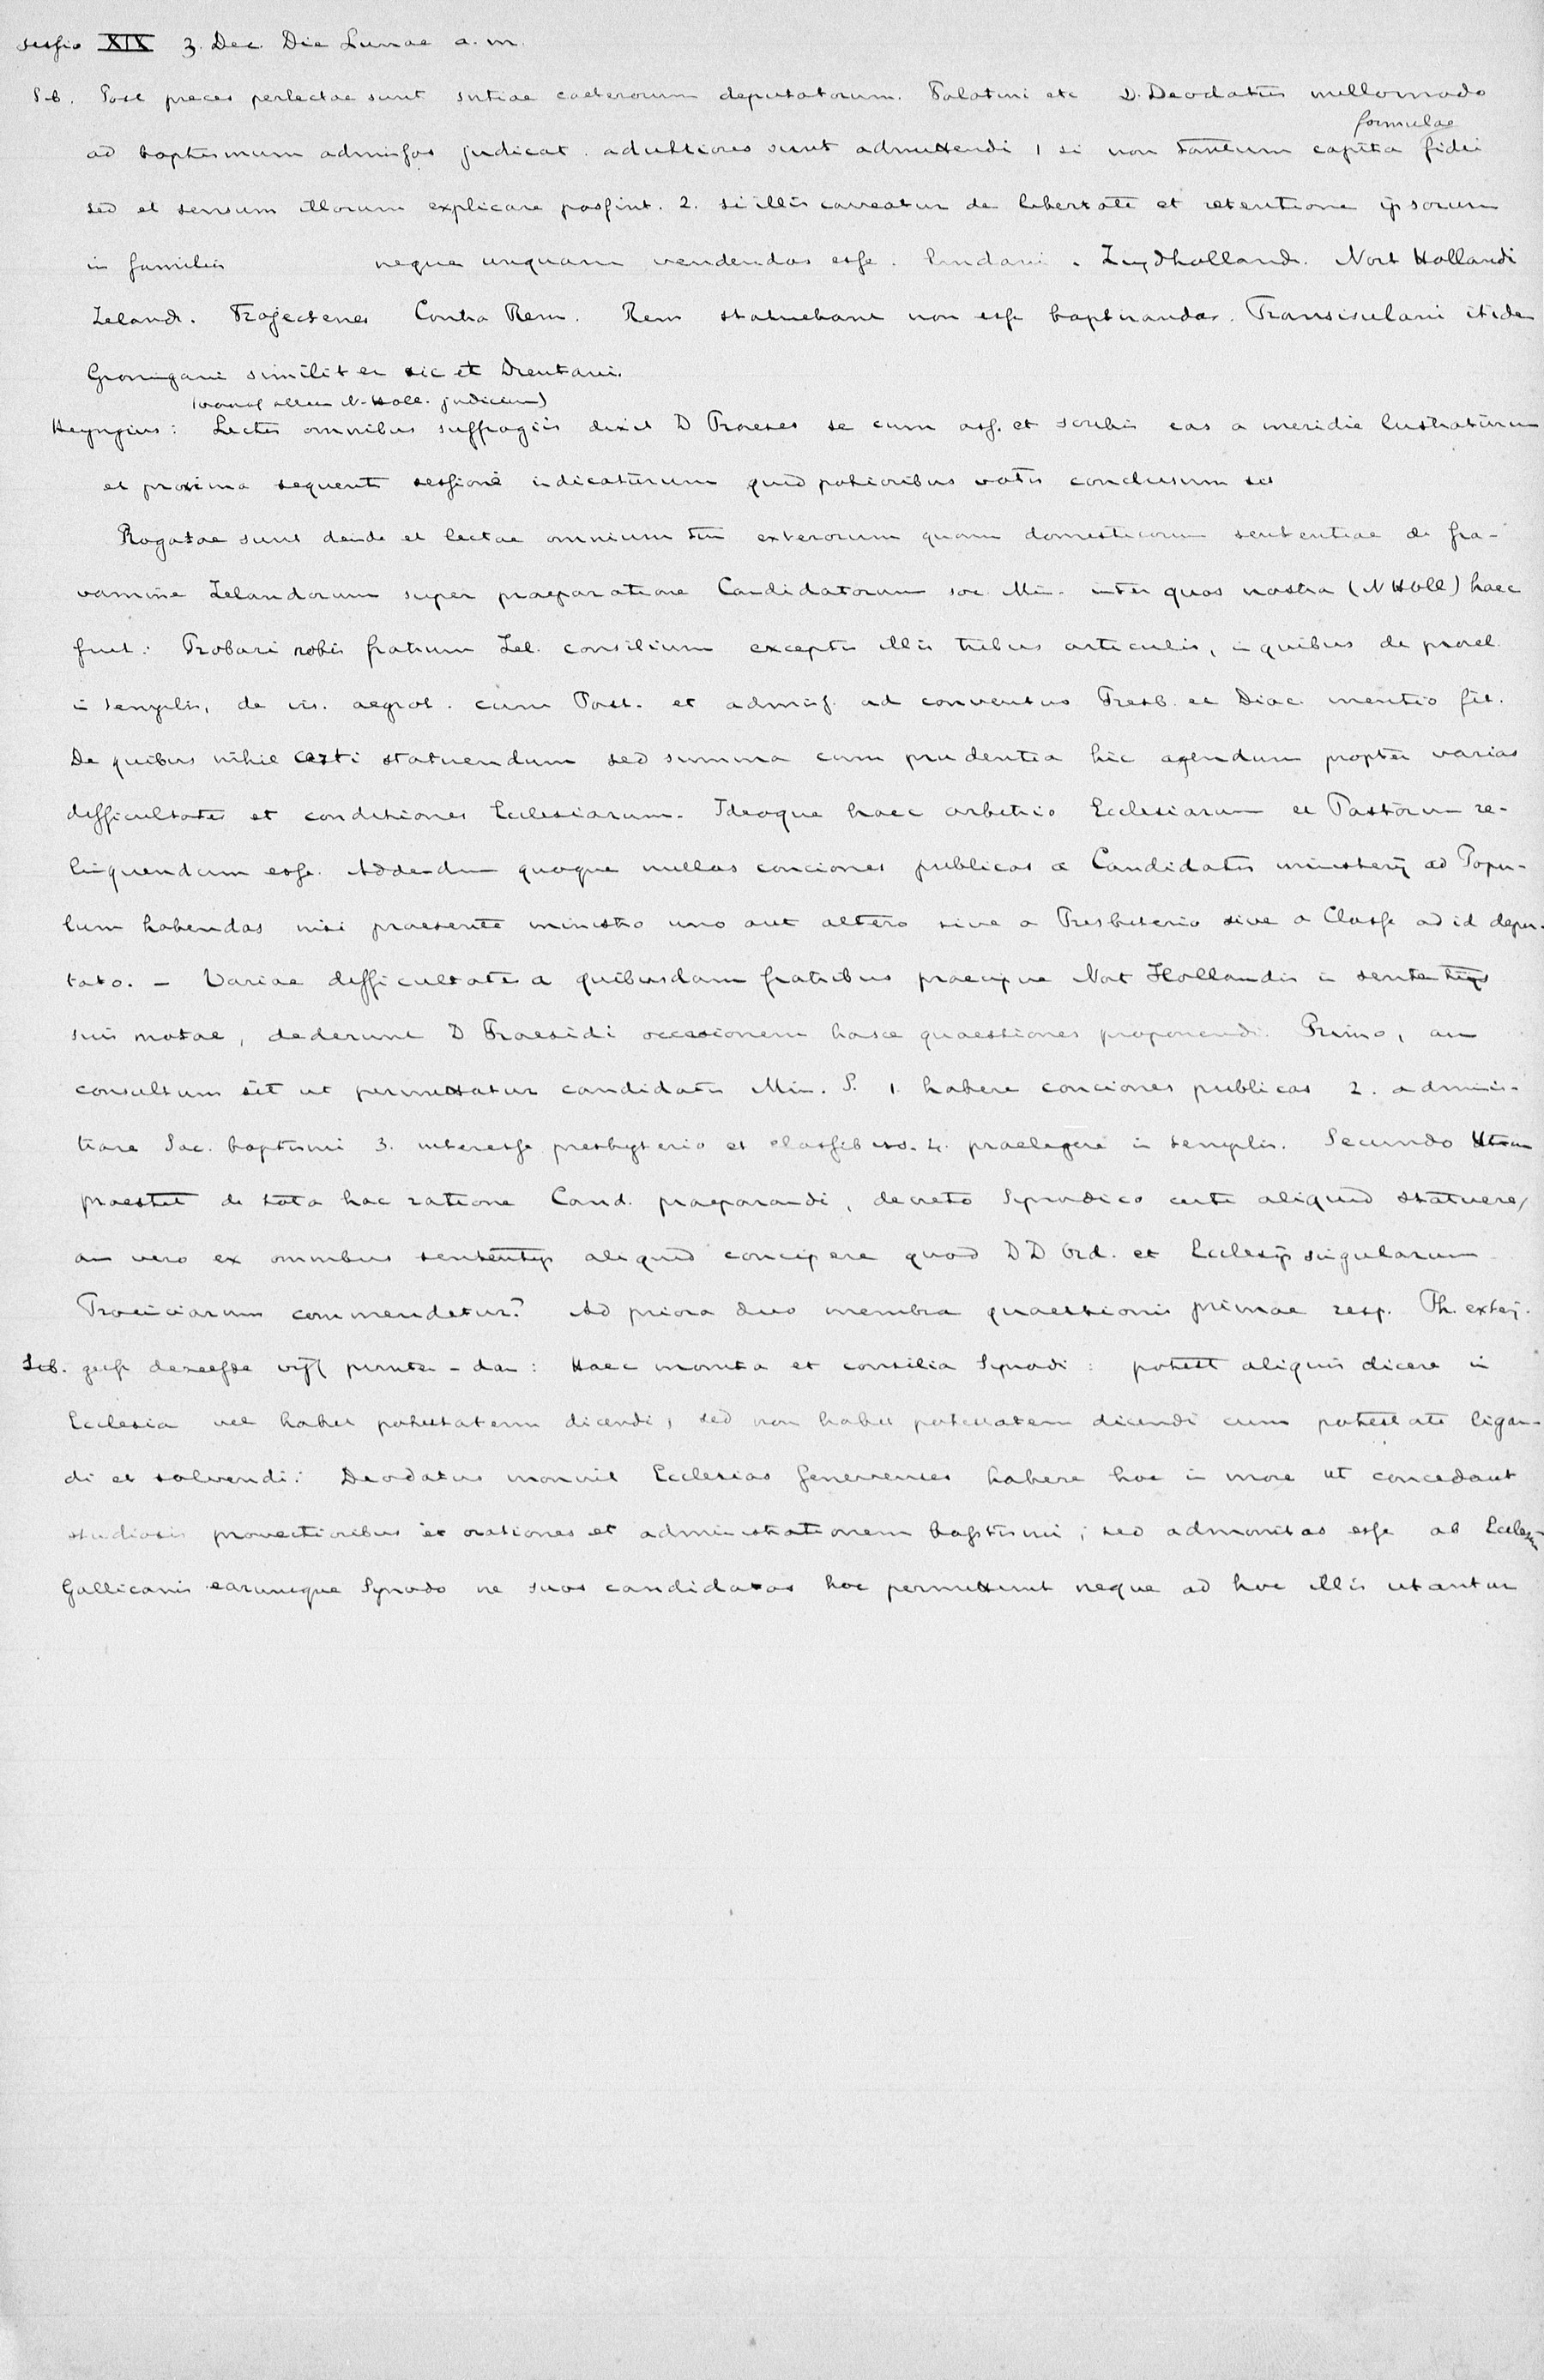 sessio XIX 3. Dec. Die Lunae a. m.
Seb. Post preces perlectae sunt sntiae caeterorum deputatorum. Palatini etc D. Deodatus nullo modo
formulae
ad baptismum admissos judicat. adultiores sunt admittendi 1 si non tantum capita fidei
sed et sensum illorum explicare possint. 2. si illis caveatur de libertate et retentione ipsorum
in familiis neque unquam vendendas esse. Zuydholland. Nort Hollandi
Zeland. Trajectenes Contra Rem. Rem statuebant non esse baptizandas. Transisulani itide
Groningani similiter sic et Drentani.
(vanaf alleen N-Holl. judicium)
Heyngius: Lectis omnibus suffragiis dixit D Praeses se cum ass. et scribis eas a meridie lustraturum
et proxima sequenti sessione indicaturum quid potioribus votis conclusum sit
Rogatae sunt deinde et lectae omnium tm exterorum quam domesticorum sententiae de gra-
vamine Zelandorum super praeparatione Candidatorum soc. Min. inter quos nostra (N Holl) haec
fuit: Probari nobis fratrum Zel. consilium exceptis illis tribus articulis, in quibus de prael.
in templis, de vis. aegrot. cum Past. et admiss. ad conventus Presb. et Diac. mentio fit.
De quibus nihil certi statuendum sed summa cum prudentia hic agendum propter varias
difficultates et conditiones Ecclesiarum. Ideoque haec arbitrio Ecclesiarum et Pastorum re-
linquendum esse. Addendum quoque nullas conciones publicas a Candidatis ministerij ad Popu-
lum habendas nisi praesente ministro uno aut altero sive a Presbiterio sive a Classe ad id depu-
tato. - Variae difficultates a quibusdam fratribus praecipue Nort Hollandis in sententijs
suis motae, dederunt D Praesidi occasionem hasce quaestiones proponendi. Primo, an
consultum sit ut permittatur candidatis Min. S. 1. habere conciones publicas 2. adminis-
trare Sac. baptismi 3. interesse presbyterio et classibus. 4. praelegere in templis. Secundo Utrum
praestet de tota hac ratione Cand. praeparandi, decreto Synodico certi aliquid statuere,
an vero ex omnibus sententijs aliquid concipere quod DD Ord. et Ecclesijs singularum
Provinciarum commendetur? Ad priora duo membra quaestionis primae resp. Th. exterj.
Seb. geeft dezelfde vijf punten - dan: Haec monita et consilia Synodi: potest aliquis dicere in
Ecclesia vel habet potestatem dicendi, sed non habet potestatem dicendi cum potestate ligan-
di et solvendi: Deodatus monuit Ecclesias Genevenses habere hoc in more ut concedant
studiosis provectioribus et orationes et administrationem baptismi; sed admonitas esse ab Ecclesijs
Gallicanis earumque Synodo ne suos candidatos hoc permitterent neque ad hoc illis utantur